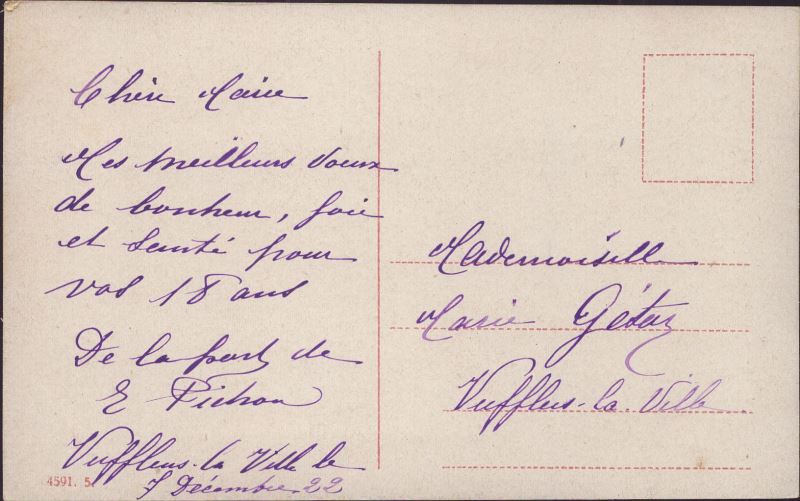 Chère Marie
Mes meilleurs voeux
de bonheur, joie
et santé pour
vos 18 ans
De la part de
E Pichon
Vufflens-la Ville le
7 Décembre 22
4591. 5.
Mademoiselle
Marie Gétaz
Vufflens-la-Ville